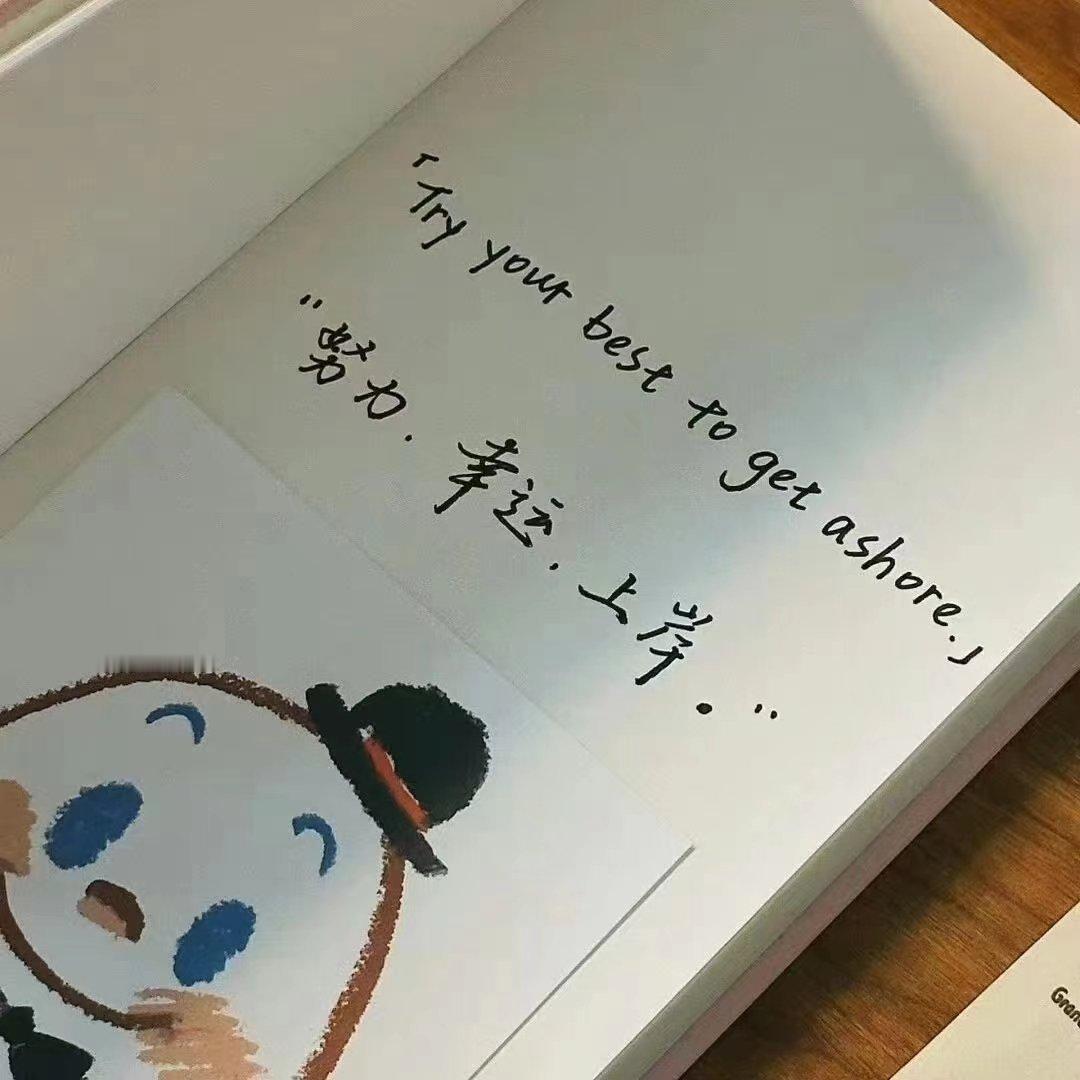 「Try your best to get ashore.」
“努力.幸运.上岸。”
Gran